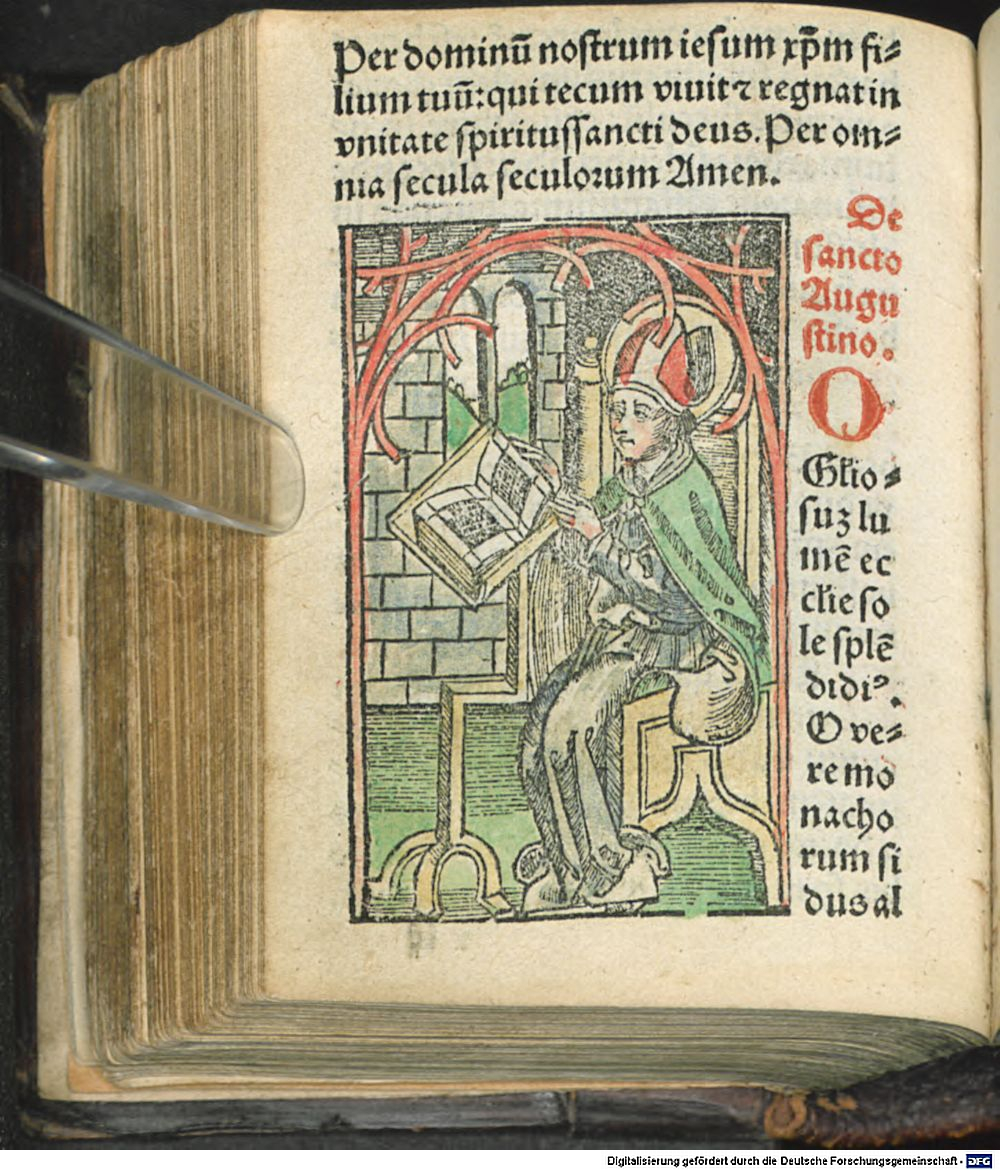 Per dominū nostrum iesum xp̄m fi⸗
lium tuū: qui tecum viuit ⁊ regnat in
vnitate spiritussancti deus. Per om⸗
nia secula seculoꝛum Amen.
De
sancto
Augu
stino.
O
Gl̄io⸗
suꝫ lu
mē ec
cl̄ie so
le splē
didiꝰ.
O ve⸗
re mo
nacho
rum si
dus al
Digitalisierung gefördert durch die Deutsche Forschungsgemeinschaft - DFG